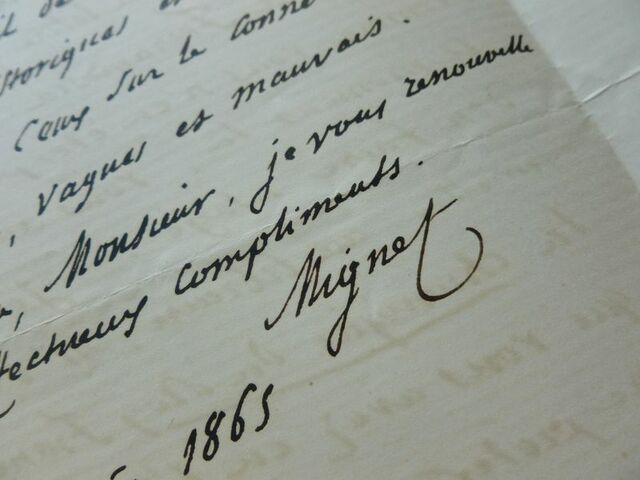 il de
storiques et
ceux sur le conne
, vagues et mauvais.
, Monsieur, je vous renouvelle
fectueux compliments.
Mignet
1865